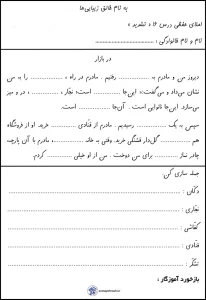 به نام خالق زیبایی‌ها
املای خلاقی درس ۱۶ « تشدید »
نام و نام خانوادگی: ..............................
در بازار
دیروز من و مادرم به ............ رفتیم . مادرم در راه ، ............ را به من
نشان می‌داد و می‌گفت:« این‌جا ............ است؛ نجّار ، ............ ، در و میز
می‌سازد. این‌جا نانوایی است . آن‌جا ............ است.
سپس به یک ............ رسیدیم . مادرم از قنّادی ............ خرید. او از فروشگاه
هم ............ گل‌دار قشنگی خرید. وقتی به خانه ............ ، مادرم با آن پارچه
چادر نماز ............ برای من دوخت . من از او خیلی ............ کردم.
جمله سازی کن:
دکّان :
نجّاری :
کفّاشی :
قنّادی :
تشکّر :
بازخورد آموزگار :